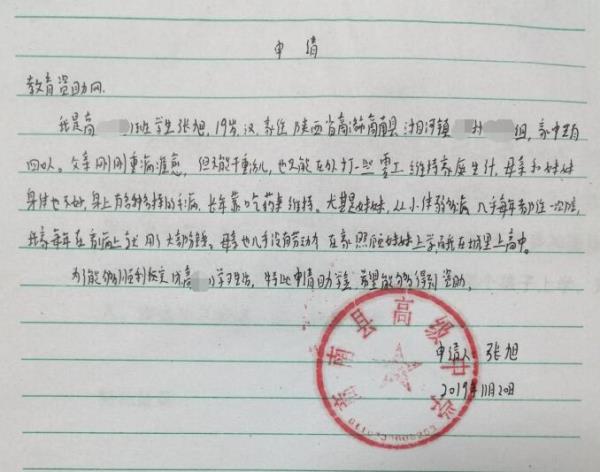 申请
教育资助网
我是高班学生张旭,19岁,汉,家住陕西省商洛商南县湘河镇村组,家中共有
四口人。父亲刚刚重病痊愈,但不能干重活,也只能在外打一些零工维持家庭生计,母亲和妹妹
身体也不好,身上有各种各样的疾病,长年靠吃药来维持。尤其是妹妹,从小体弱多病,几乎每年都住一次院,
我家每年在看病上就用了大部分钱。母亲也几乎没有劳动力在家照顾妹妹上学而我在城里上高中。
为了能够顺利完成高学习生活,特此申请助学金希望能够得到资助。
申请人:张旭
2019年11月20日
商南县高级中学